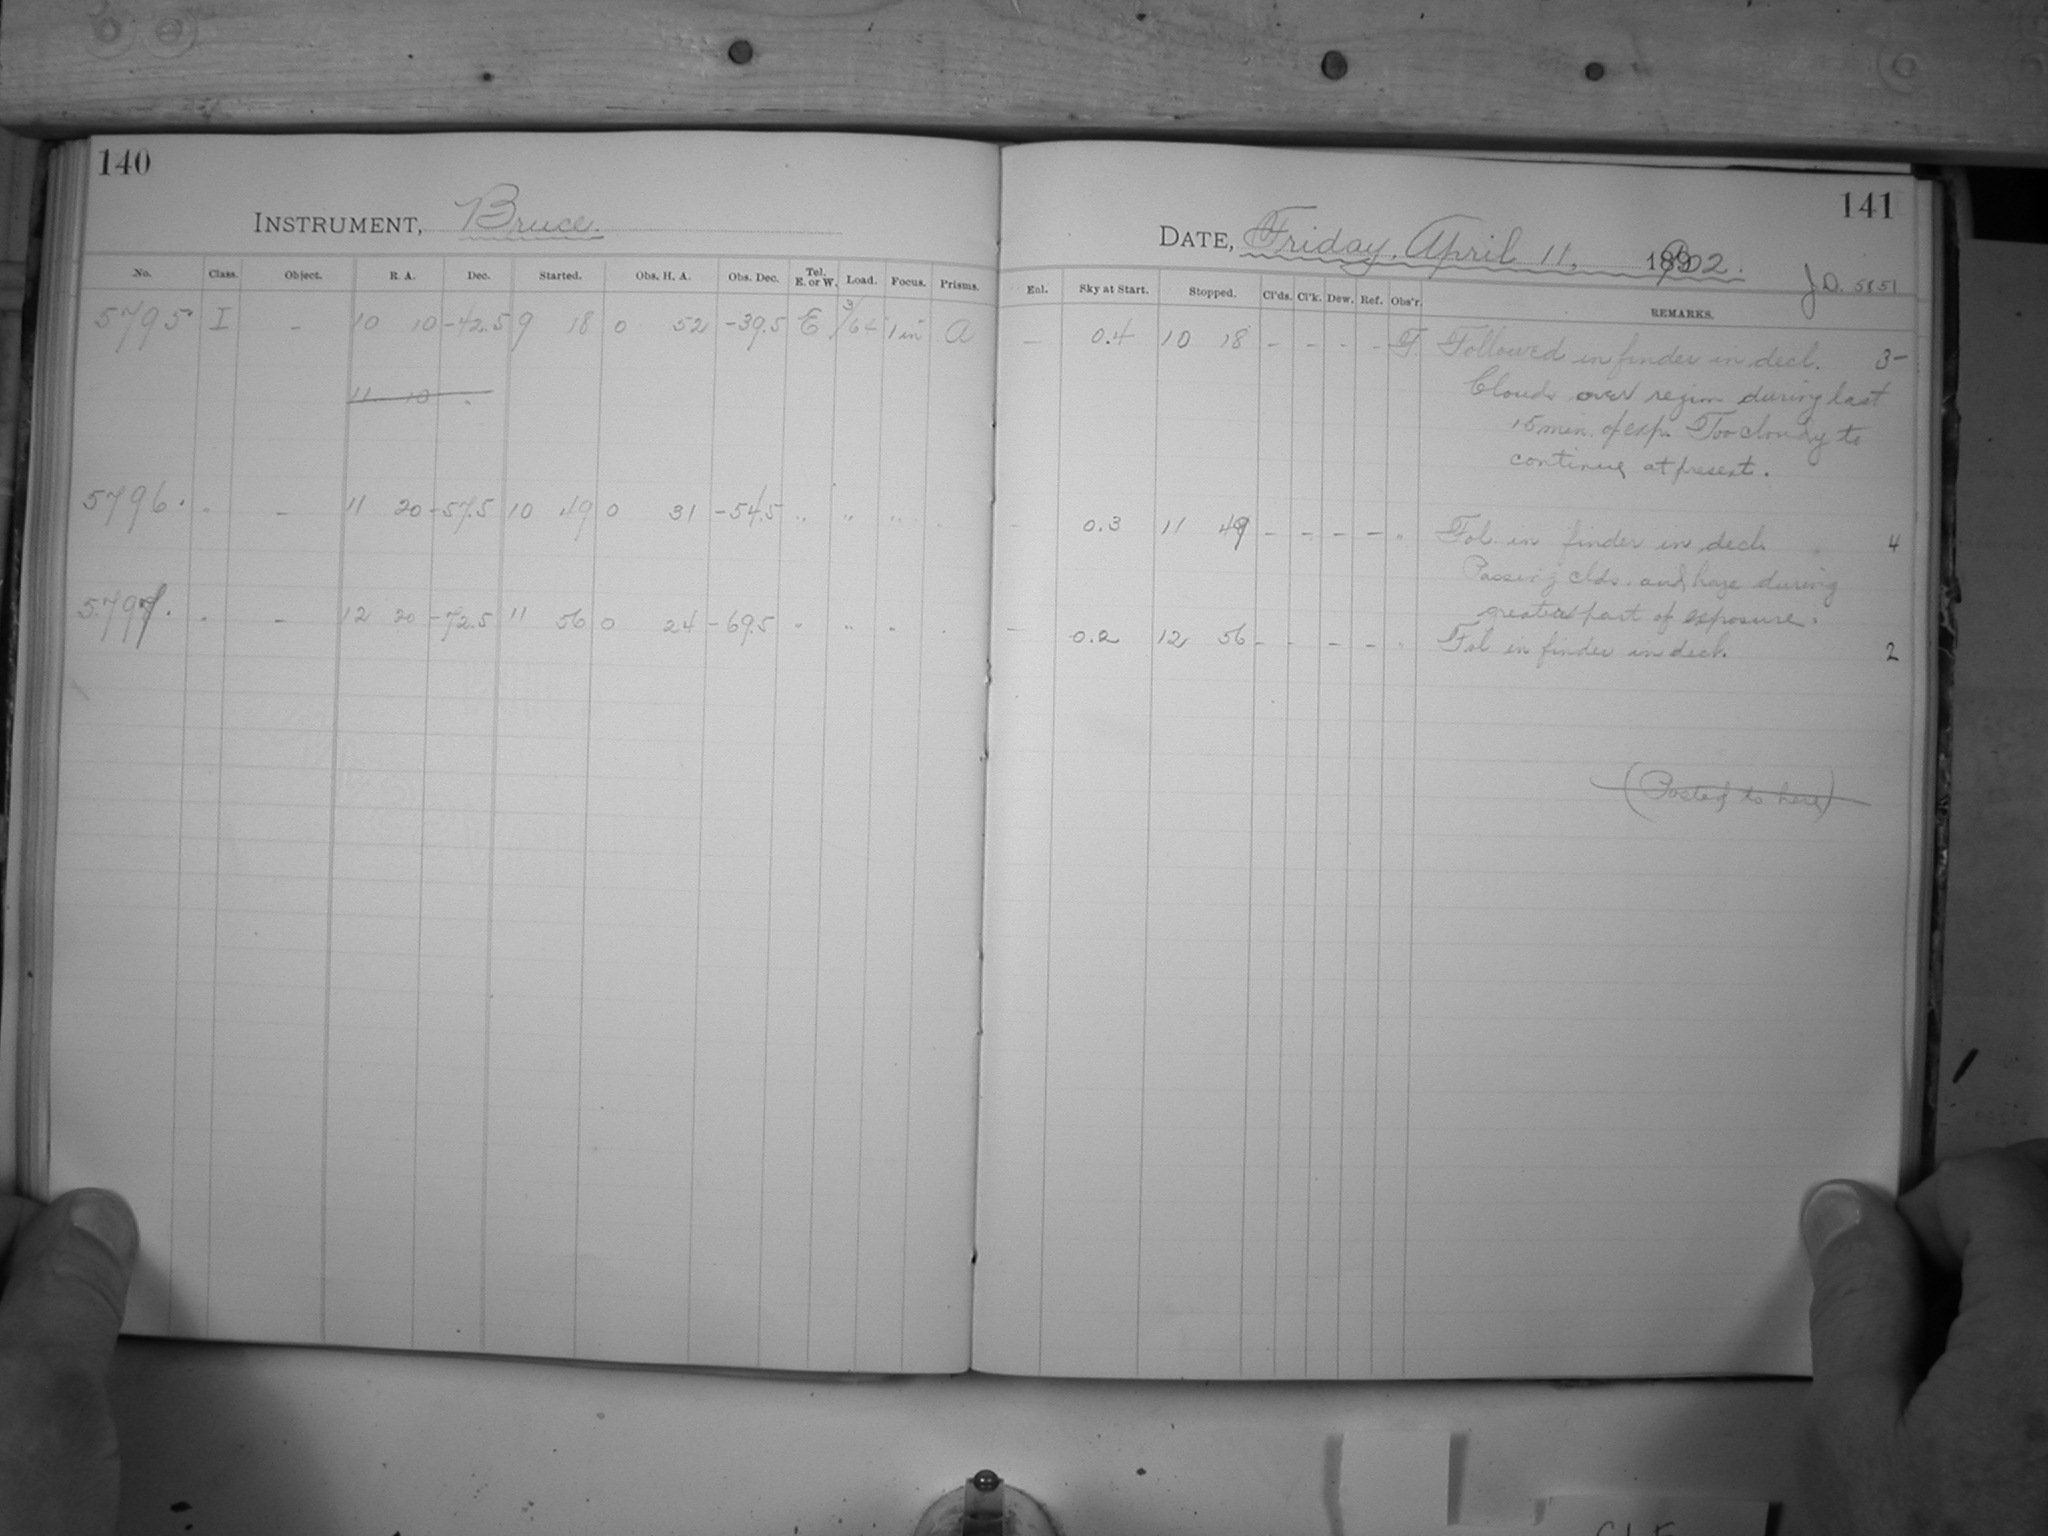 140
INSTRUMENT, Bruce.
No. Class. Object. R. A. Dec. Started. Obs. H. A. Obs. Dec. Tel. E. or W. Load. Focus. Prisms.
5795 I - 10 10 -42.5 9 18 0 52 -39.5 E 3/64 1 in A
11 10
5796. " - 11 20 -57.5 10 49 0 31 -54.5 " " " "
5797. " - 12 20 -72.5 11 56 0 24 -69.5 " " " "
141
DATE, Friday, April 11, 1902.
J.D. 5851
Enl. Sky at Start. Stopped. Cl'ds. Cl'k. Dew. Ref. Obs'r. REMARKS.
- 0.4 10 18 - - - - F. Followed in finder in decl. 3-
Clouds over region during last
15 min. of exp. Too cloudy to
continue at present.
- 0.3 11 49 - - - - " Fol. in finder in decl. 4
Passing clds. and haze during
greater part of exposure.
- 0.2 12 56 - - - - " Fol in finder in decl. 2
(Posted to here)